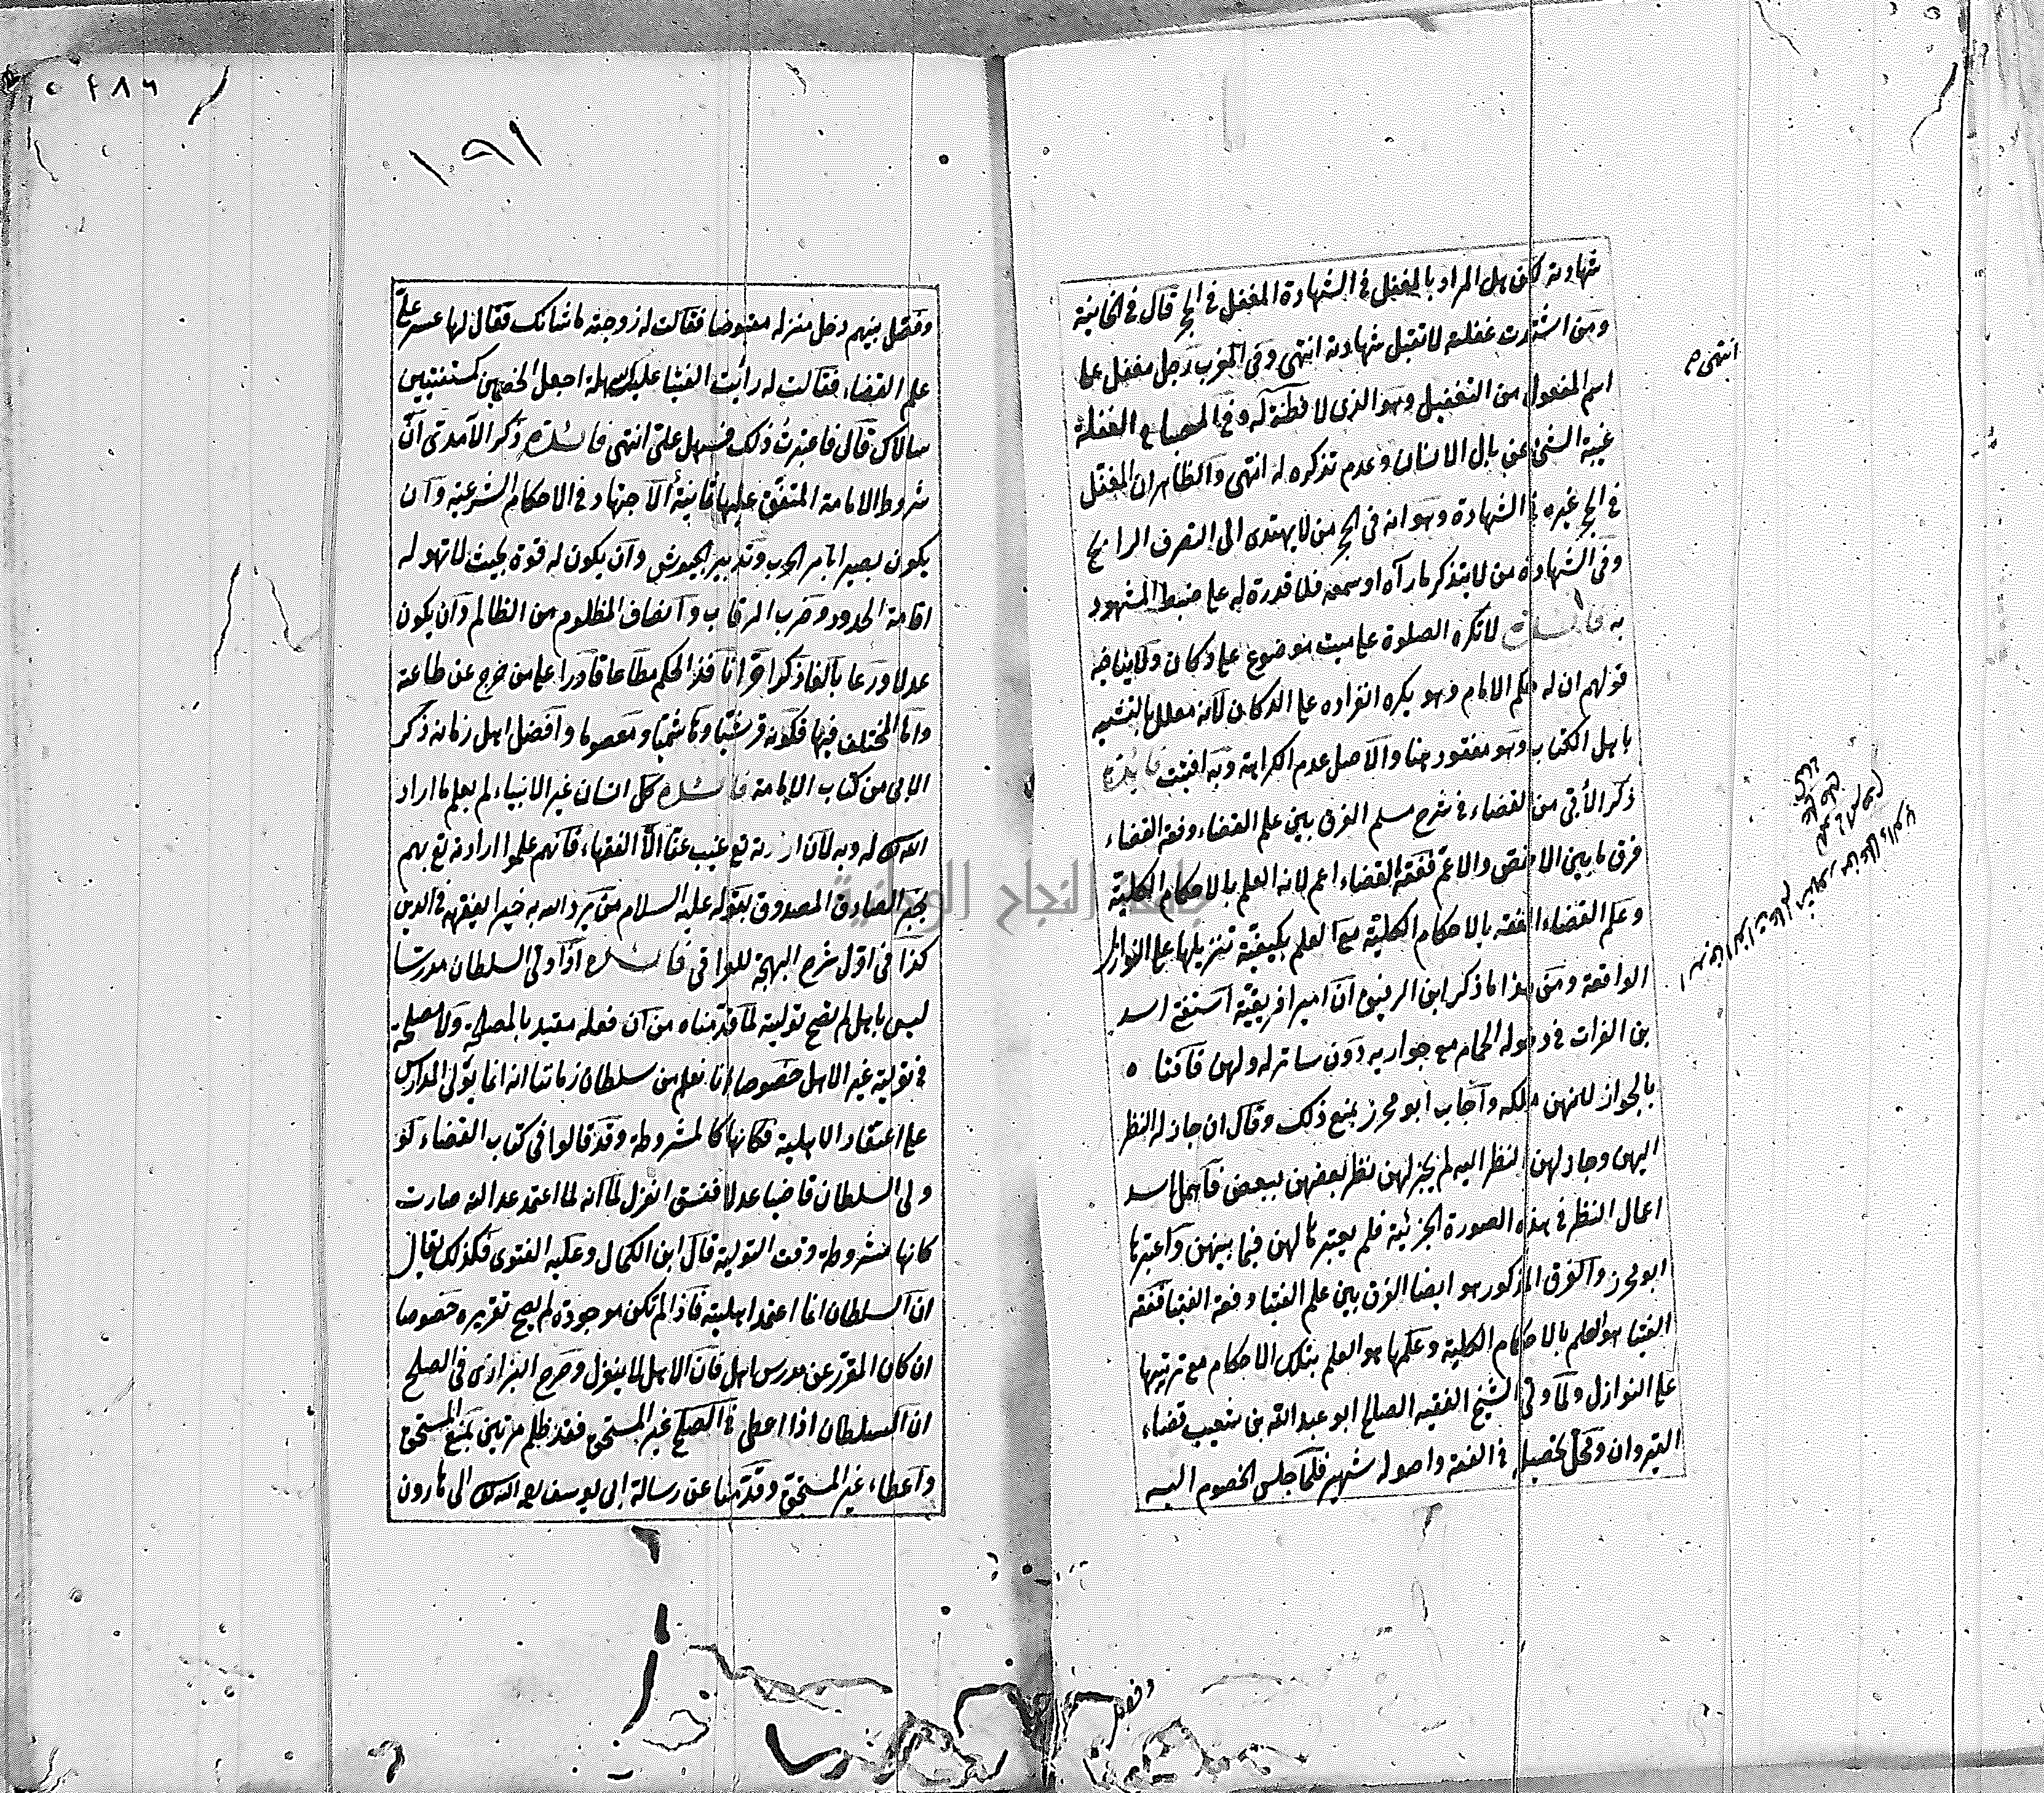 شهادته لكن هل المراد بالمغفل في الشهادة المغفل في الحجر قال في الخانية
ومن اشتدت غفلته لا تقبل شهادته انتهى وفي المغرب رجل مغفل على
اسم المفعول من التغفيل وهو الذي لا فطنة له وفي المصباح الغفلة
غيبة الشئ عن بال الانسان وعدم تذكره له انتهى والظاهر ان المغفل
في الحجر غيره في الشهادة وهو انه في الحجر من لا يهتدى الى التصرف الرابح
وفي الشهادة من لا يتذكر ما رآه او سمعه فلا قدرة له على ضبط المشهود
به فائدة لا تكره الصلوة على ميت موضوع على دكان ولا ينافيه
قولهم ان له حكم الامام وهو يكره انفراده على الدكان لانه معلل بالتشبه
باهل الكتاب وهو مفقود هنا والاصل عدم الكراهة وبه افتيت فائدة
ذكر الأبي من القضاء في شرح مسلم الفرق بين علم القضاء وفقه القضاء
فرق ما بين الاخص والاعم ففقه القضاء اعم لانه العلم بالاحكام الكلية
وعلم القضاء الفقه بالاحكام الكلية مع العلم بكيفية تنزيلها على النوازل
الواقعة ومن هذا ما ذكر ابن الرفيع ان امير افريقية استفتى اسد
بن الفرات في دخوله الحمام مع جواريه دون ساتر له ولهن فافتا ه
بالجواز لانهن ملكه واجاب ابو محرز بمنع ذلك وقال ان جاز له النظر
اليهن وجاز لهن النظر اليه لم يجز لهن نظر بعضهن ببعض فاهمل اسد
اعمال النظر في هذه الصورة الجزئية فلم يعتبر ما لهن فيما بينهن واعتبرها
ابو محرز والفرق المذكور هو ايضا الفرق بين علم الفتيا وفقه الفتيا ففقه
الفتيا هو العلم بالاحكام الكلية وعلمها هو العلم بتلك الاحكام مع ترتيبها
على النوازل ولما ولي الشيخ الفقيه الصالح ابو عبد الله بن شعيب قضاء
القيروان ومحل تحصيله في الفقه واصوله شهير فلما جلس الخصوم اليه
انتهى م
وفصل
١٩١
وفصل بينهم دخل منزله مقبوضا فقالت له زوجته ما شانك فقال لها عسر علي
علم القضاء فقالت له رأيت الفتيا عليك سهلة اجعل الخصمين كمستفتيين
سالاك قال فاعتبرت ذلك فسهل علي انتهى فائدة ذكر الآمدي ان
شروط الامامة المتفق عليها ثمانية الاجتهاد في الاحكام الشرعية وان
يكون بصيرا بامر الحرب وتدبير الجيوش وان يكون له قوة بحيث لا تهوله
اقامة الحدود وضرب الرقاب وانصاف المظلوم من الظالم وان يكون
عدلا ورعا بالغا ذكرا حرا نافذ الحكم مطاعا قادرا على من خرج عن طاعته
واما المختلف فيها فكونه قرشيا وهاشميا ومعصوما وافضل اهل زمانه ذكر
الابي من كتاب الامامة فائدة كل انسان غير الانبياء لم يعلم ما اراد
الله تعالى له وبه لان ارادته تع غيب عنا الا الفقهاء فانهم علموا ارادته تع بهم
بخبر الصادق المصدوق بقوله عليه السلام من يرد الله به خيرا يفقهه في الدين
كذا في اول شرح البهجة للعراقي فائدة اذا ولي السلطان مدرسا
ليس باهل لم تصح توليته لما قدمناه من ان فعله مقيد بالمصلحة ولا مصلحة
في تولية غير الاهل خصوصا انا نعلم من سلطان زماننا انه انما يولي المدارس
على اعتقاد الاهلية فكانها كالمشروطة وقد قالوا في كتاب القضاء لو
ولي السلطان قاضيا عدلا ففسق انعزل لما انه لما اعتمد عدالته صارت
كانها مشروطة وقت التولية قال ابن الكمال وعليه الفتوى فكذلك يقال
ان السلطان انما اعتمد اهليته فاذا لم تكن موجودة لم يصح تقريره خصوصا
ان كان المقرر عن مدرس اهل فان الاهل لا ينعزل وصرح البزازي في الصلح
ان السلطان اذا اعطى في الصلح غير المستحق فقد ظلم مرتين بمنع المستحق
واعطاء غير المستحق وقد قدمنا عن رسالة ابي يوسف رحمه الله تعالى الى هارون
جامعة النجاح الوطنية